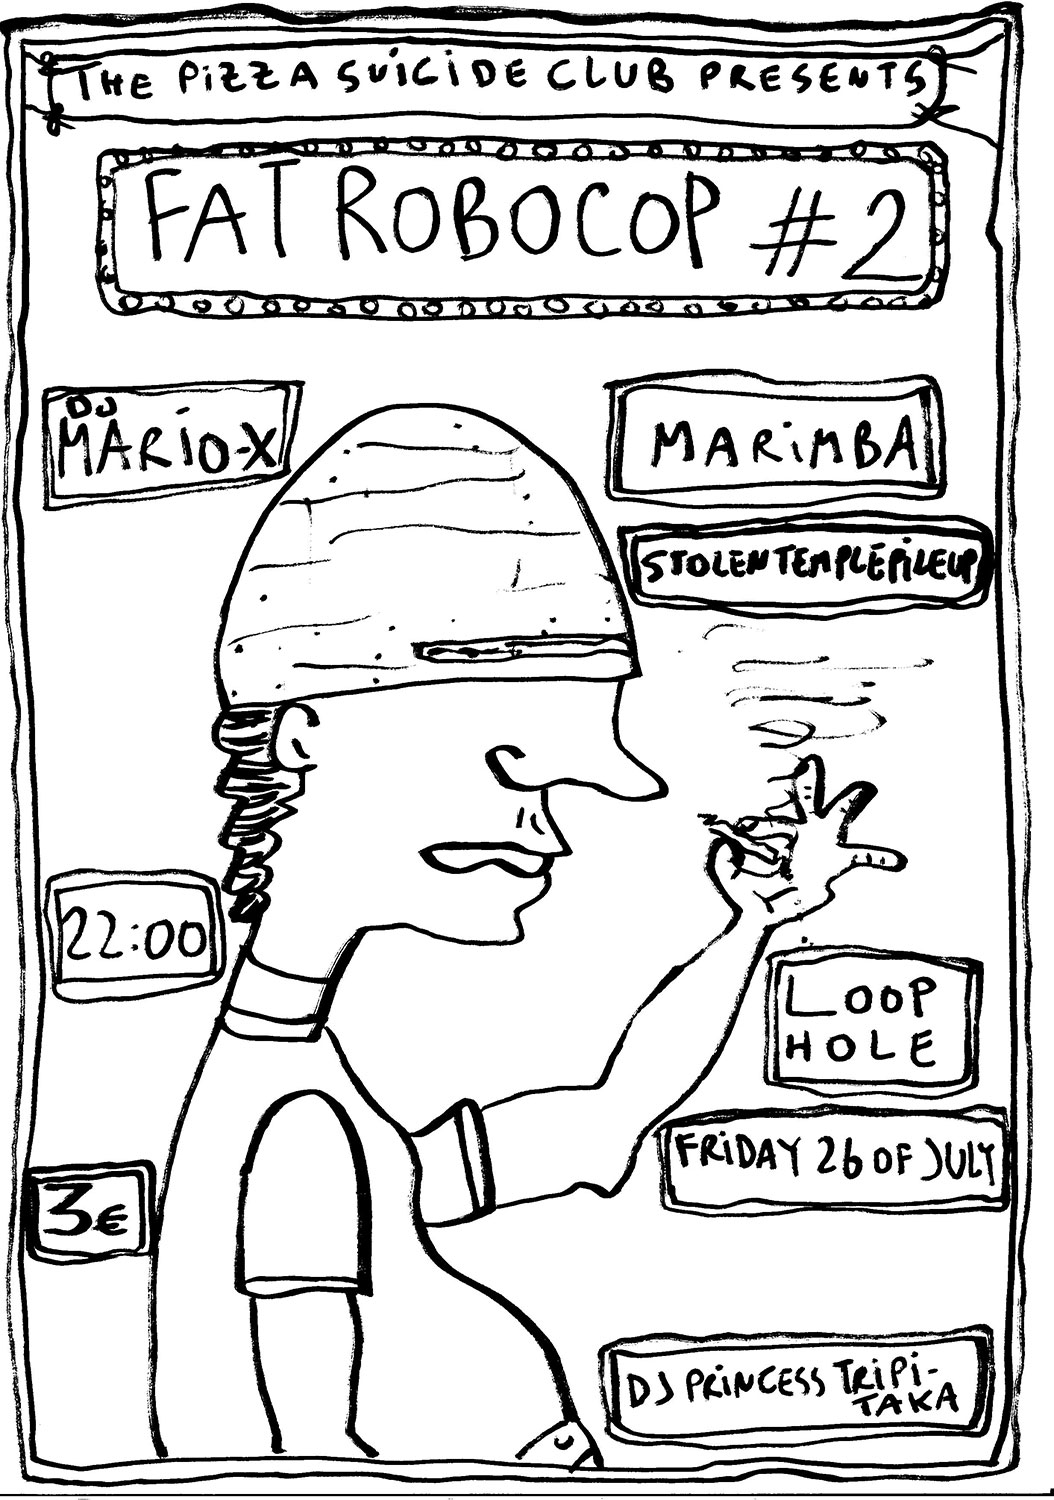 THE PiZZA SUiCiDE CLUB PRESENTS
FAT ROBOCOP #2
DJ
MARiO-X
MARiMBA
STOLENTEMPLEPiLEUP
22:00
LOOP
HOLE
FRiDAY 26 OF JULY
3€
DJ PRiNCESS TRiPi-
TAKA